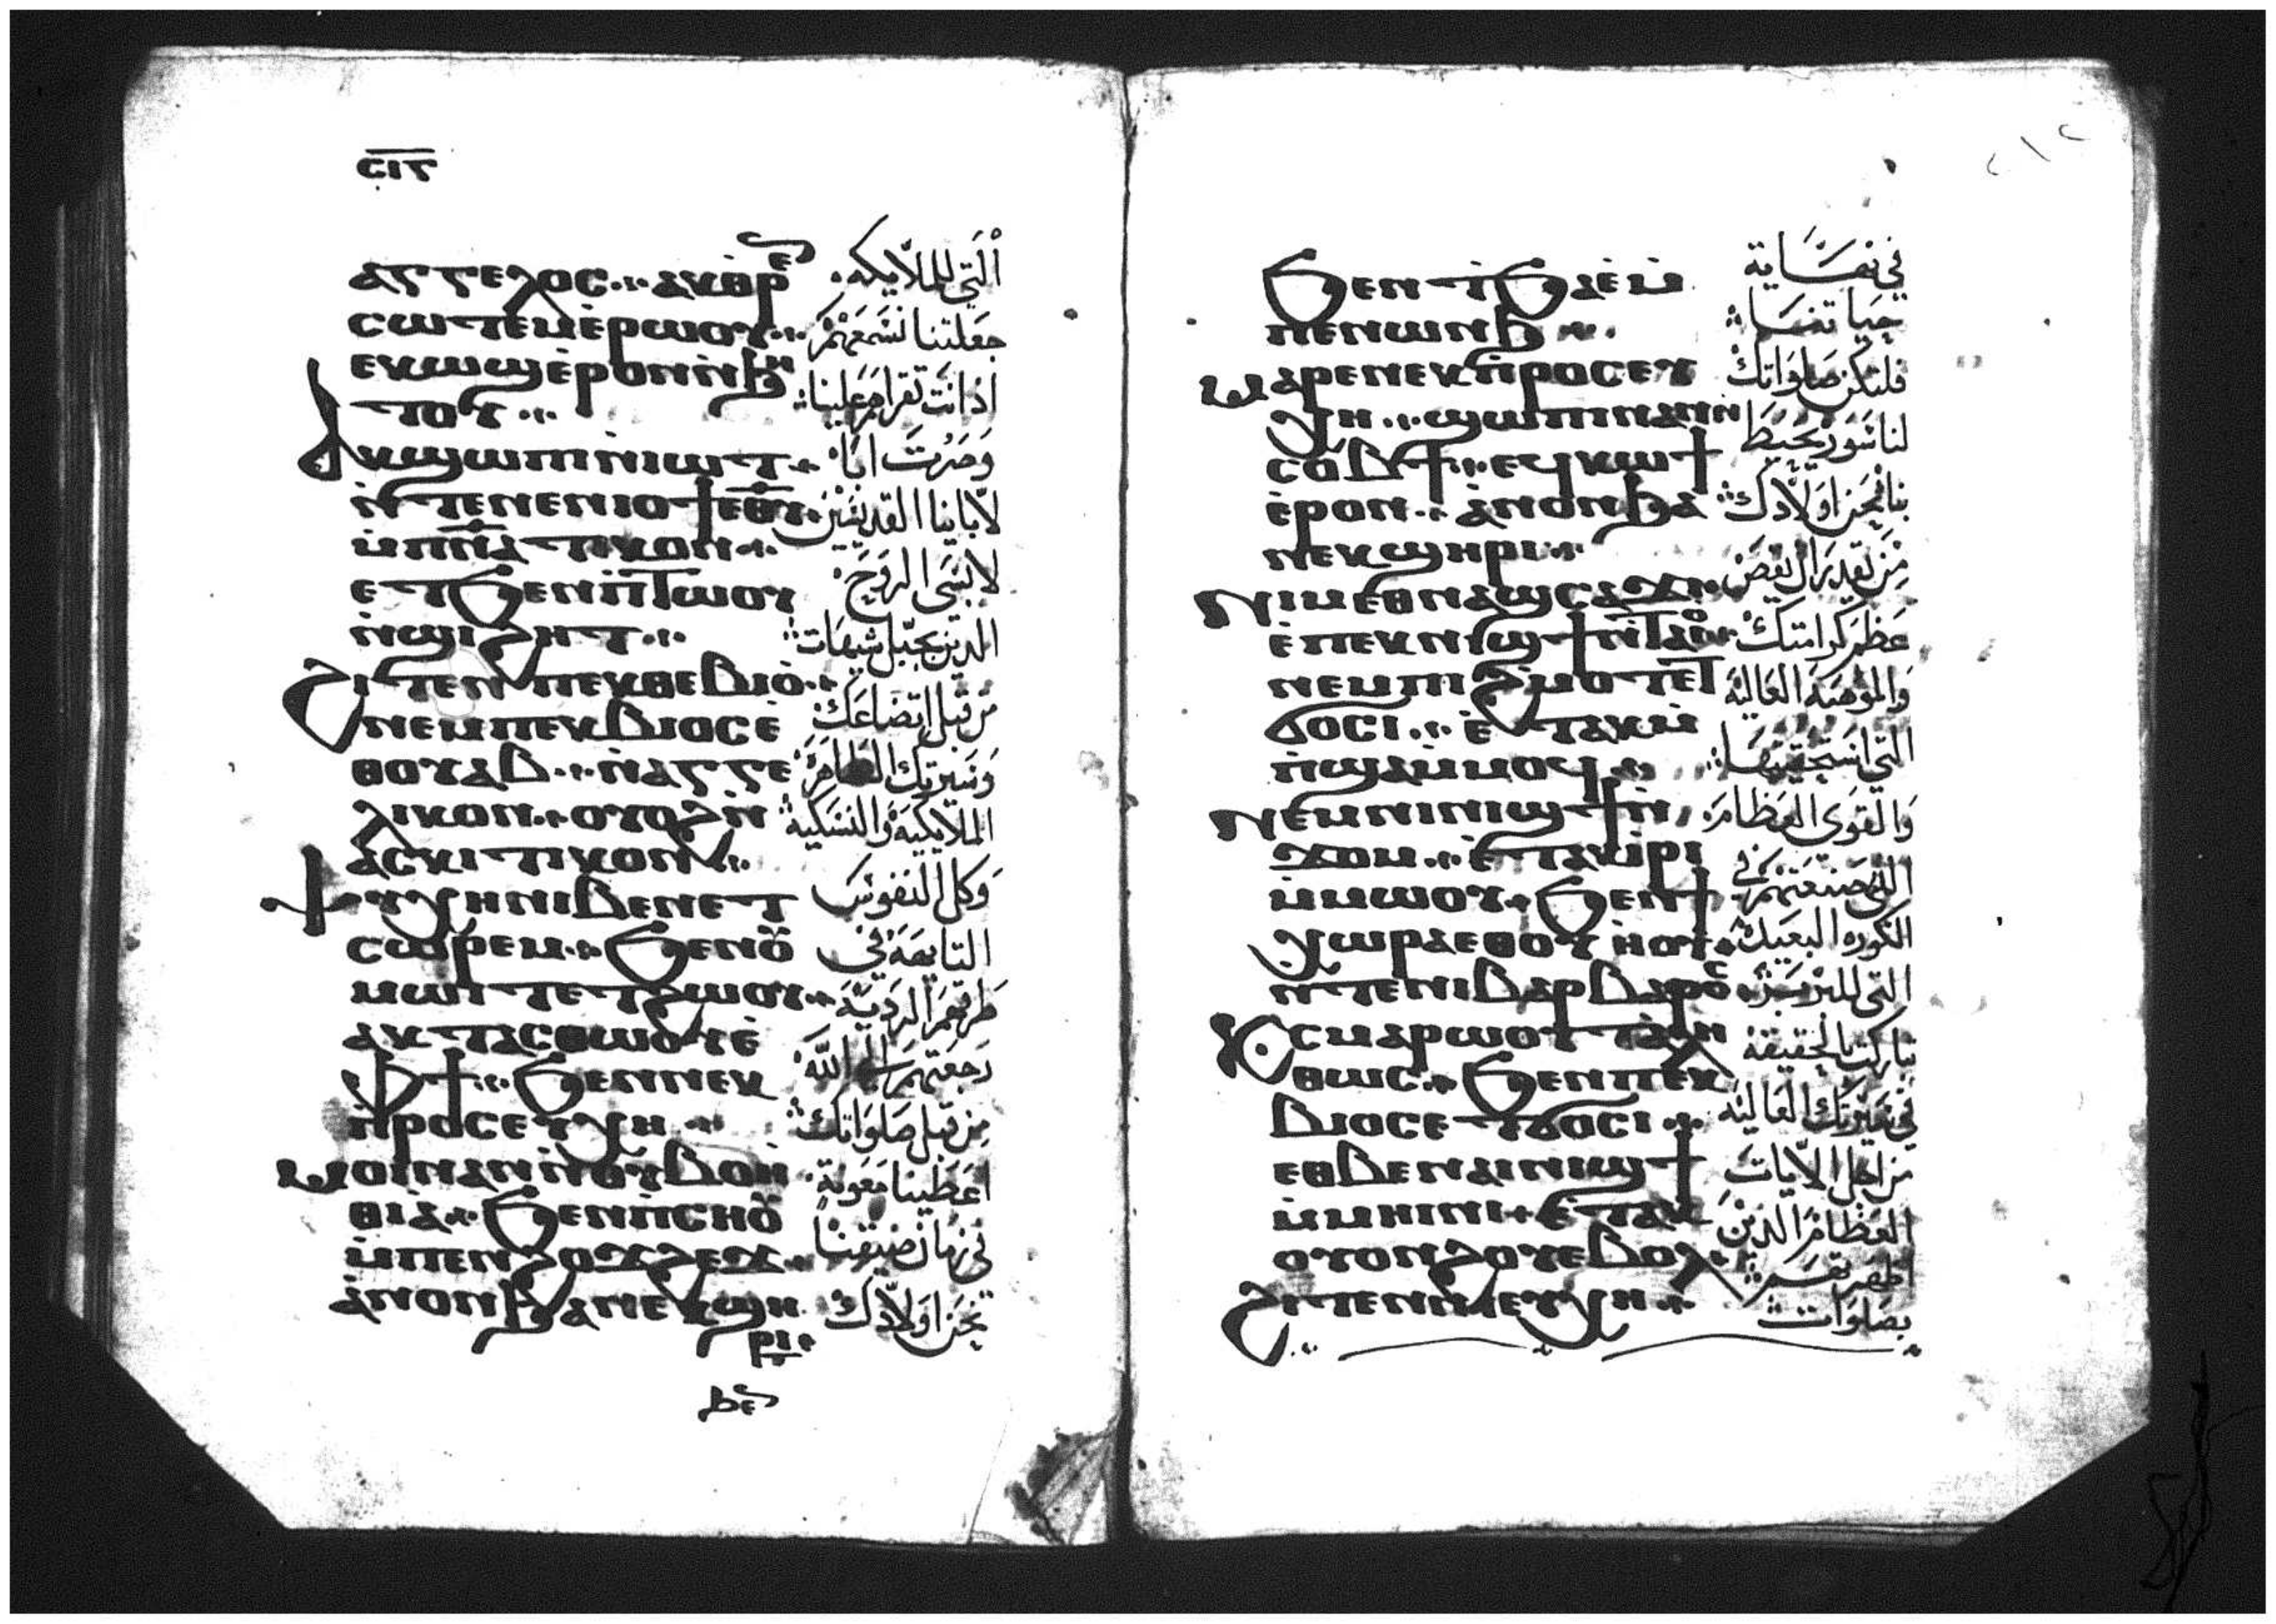 ⲥⲓⲋ
ⲁⲅⲅⲉⲗⲟⲥ ⲁⲕⲑⲣⲉ
ⲥⲱⲧⲉⲙⲉ̀ⲣⲱⲟⲩ
ⲉⲕⲱϣⲉ̀ⲣⲟⲛⲛ̀ϧⲏ
ⲧⲟⲩ
ⲁⲕϣⲱⲡⲓⲛ̀ⲓⲱⲧ
ⲛ̀ⲧⲉⲛⲉⲛⲓⲟϯⲉ̅ⲑ̅ⲩ̅
ⲙ̀ⲡ̅ⲛ̅ⲁ̅ⲧⲓⲕⲟⲛ
ⲉⲧϧⲉⲛⲡ̀ⲧⲱⲟⲩ
ⲛ̀ϣⲓϩⲏⲧ
ϩⲓⲧⲉⲛⲡⲉⲕⲑⲉⲃⲓⲟ̀
ⲛⲉⲙⲡⲉⲕⲃⲓⲟⲥⲉ
ⲑⲟⲩⲁⲃ ⲛ̀ⲁⲅⲅⲉ
ⲗⲓⲕⲟⲛ ⲟⲩⲟϩⲛ̀
ⲁⲥⲕⲓⲧⲓⲕⲟⲛ
ⲯⲩⲭⲏⲛⲓⲃⲉⲛⲉⲧ
ⲥⲱⲣⲉⲙ ϧⲉⲛⲟⲩ
ⲙⲱⲓⲧⲉⲧϩⲱⲟⲩ
ⲁⲕⲧⲁⲥⲑⲱⲟⲩⲉ̀
ⲫϯ ϧⲉⲛⲛⲉⲕ
ⲡ̀ⲣⲟⲥⲉⲩⲭⲏ
ⲙⲟⲓⲛⲁⲛⲛ̀ⲟⲩⲃⲟⲏ
ⲑⲓⲁ̀ ϧⲉⲛⲡ̀ⲥⲏⲟⲩ
ⲙ̀ⲡⲉⲛϩⲟϫϩⲉϫ
ⲁ̀ⲛⲟⲛϧⲁⲛⲉⲕϣⲏ
ⲣⲓ
ϧⲉ
التي للملايكه
جعلتنا نسمعهم
اذ انت تقراهم علينا
وصرت ابا
لابائنا القديسين
لابسى الروح
الذين بجبل شيهات
من قبل اتضاعك
وسيرتك الطاهره
الملايكيه والنسكيه
وكل النفوس
التايهه في
طرقهم الرديه
رجعتهم الى الله
من قبل صلواتك
اعطينا معونة
في زمان ضيقتنا
نحن اولادك
٢١٢
ϧⲉⲛⲧ̀ϧⲁⲉ̀ⲙ̀
ⲡⲉⲛⲱⲛϧ
ⲙⲁⲣⲉⲛⲉⲕⲡ̀ⲣⲟⲥⲉⲩ
ⲭⲏ ϣⲱⲡⲓⲛⲁⲛⲛ
ⲥⲟⲃϯ ⲉϥⲕⲱϯ
ⲉ̀ⲣⲟⲛ ⲁ̀ⲛⲟⲛϧⲁ
ⲛⲉⲕϣⲏⲣⲓ
ⲛⲓⲙⲉⲑⲛⲁϣⲥⲁϫⲓ
ⲉ̀ⲡⲉⲕⲛⲓϣϯⲛ̀ⲧⲁⲓⲟ
ⲛⲉⲙⲡⲓϩⲙⲟⲧⲉⲧ
ϭⲟⲥⲓ ⲉ̀ⲧⲁⲕⲙ̀
ⲡ̀ϣⲁⲙ̀ⲙⲟϥ
ⲛⲉⲙⲛⲓⲛⲓϣϯⲛ̀
ϫⲟⲙ ⲉ̀ⲧⲁⲕⲓ̀ⲣⲓ
ⲙ̀ⲙⲱⲟⲩ ϧⲉⲛϯ
ⲭⲱⲣⲁⲉⲑⲟⲩⲏⲟⲩ
ⲛ̀ⲧⲉⲛⲓⲃⲁⲣⲃⲁⲣⲟⲥ
ⲕ̀ⲥⲙⲁⲣⲱⲟⲩⲧⲁⲗⲏ
ⲑⲱⲥ ϧⲉⲛⲡⲉⲕ
ⲃⲓⲟⲥⲉⲧϭⲟⲥⲓ
ⲉⲑⲃⲉⲛⲁⲓⲛⲓϣϯ
ⲙ̀ⲙⲏⲓⲛⲓ ⲉ̀ⲧⲁⲕ
ⲟⲩⲟⲛϩⲟⲩⲉⲃⲟⲗ
ϩⲓⲧⲉⲛⲛⲓⲉⲩⲭⲏ
في نهاية
حياتنا
فلتكن صلواتك
لنا سور يحيط
بنا نحن اولادك
من تقدير ال يفص
عظم كرامتك
والموهبه العاليه
التي استحقيتها
والقوى العظام
التي صنعتهم في
الكوره البعيده
التي للبربر
تباركت بالحقيقه
في سيرتك العاليه
من اجل الايات
العظام الذين
اظهرتهم
بصلوات